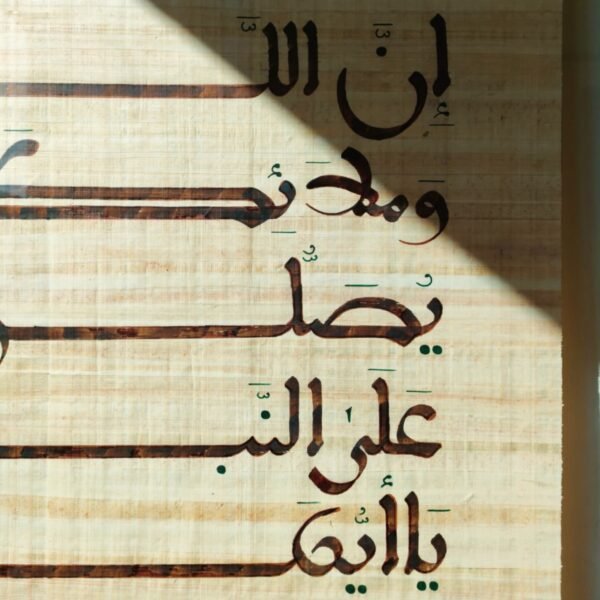 إِنَّ اللَّـ
وَمَلَائِكَـ
يُصَلُّـ
عَلَى النَّبـ
يَاأَيُّهَـ